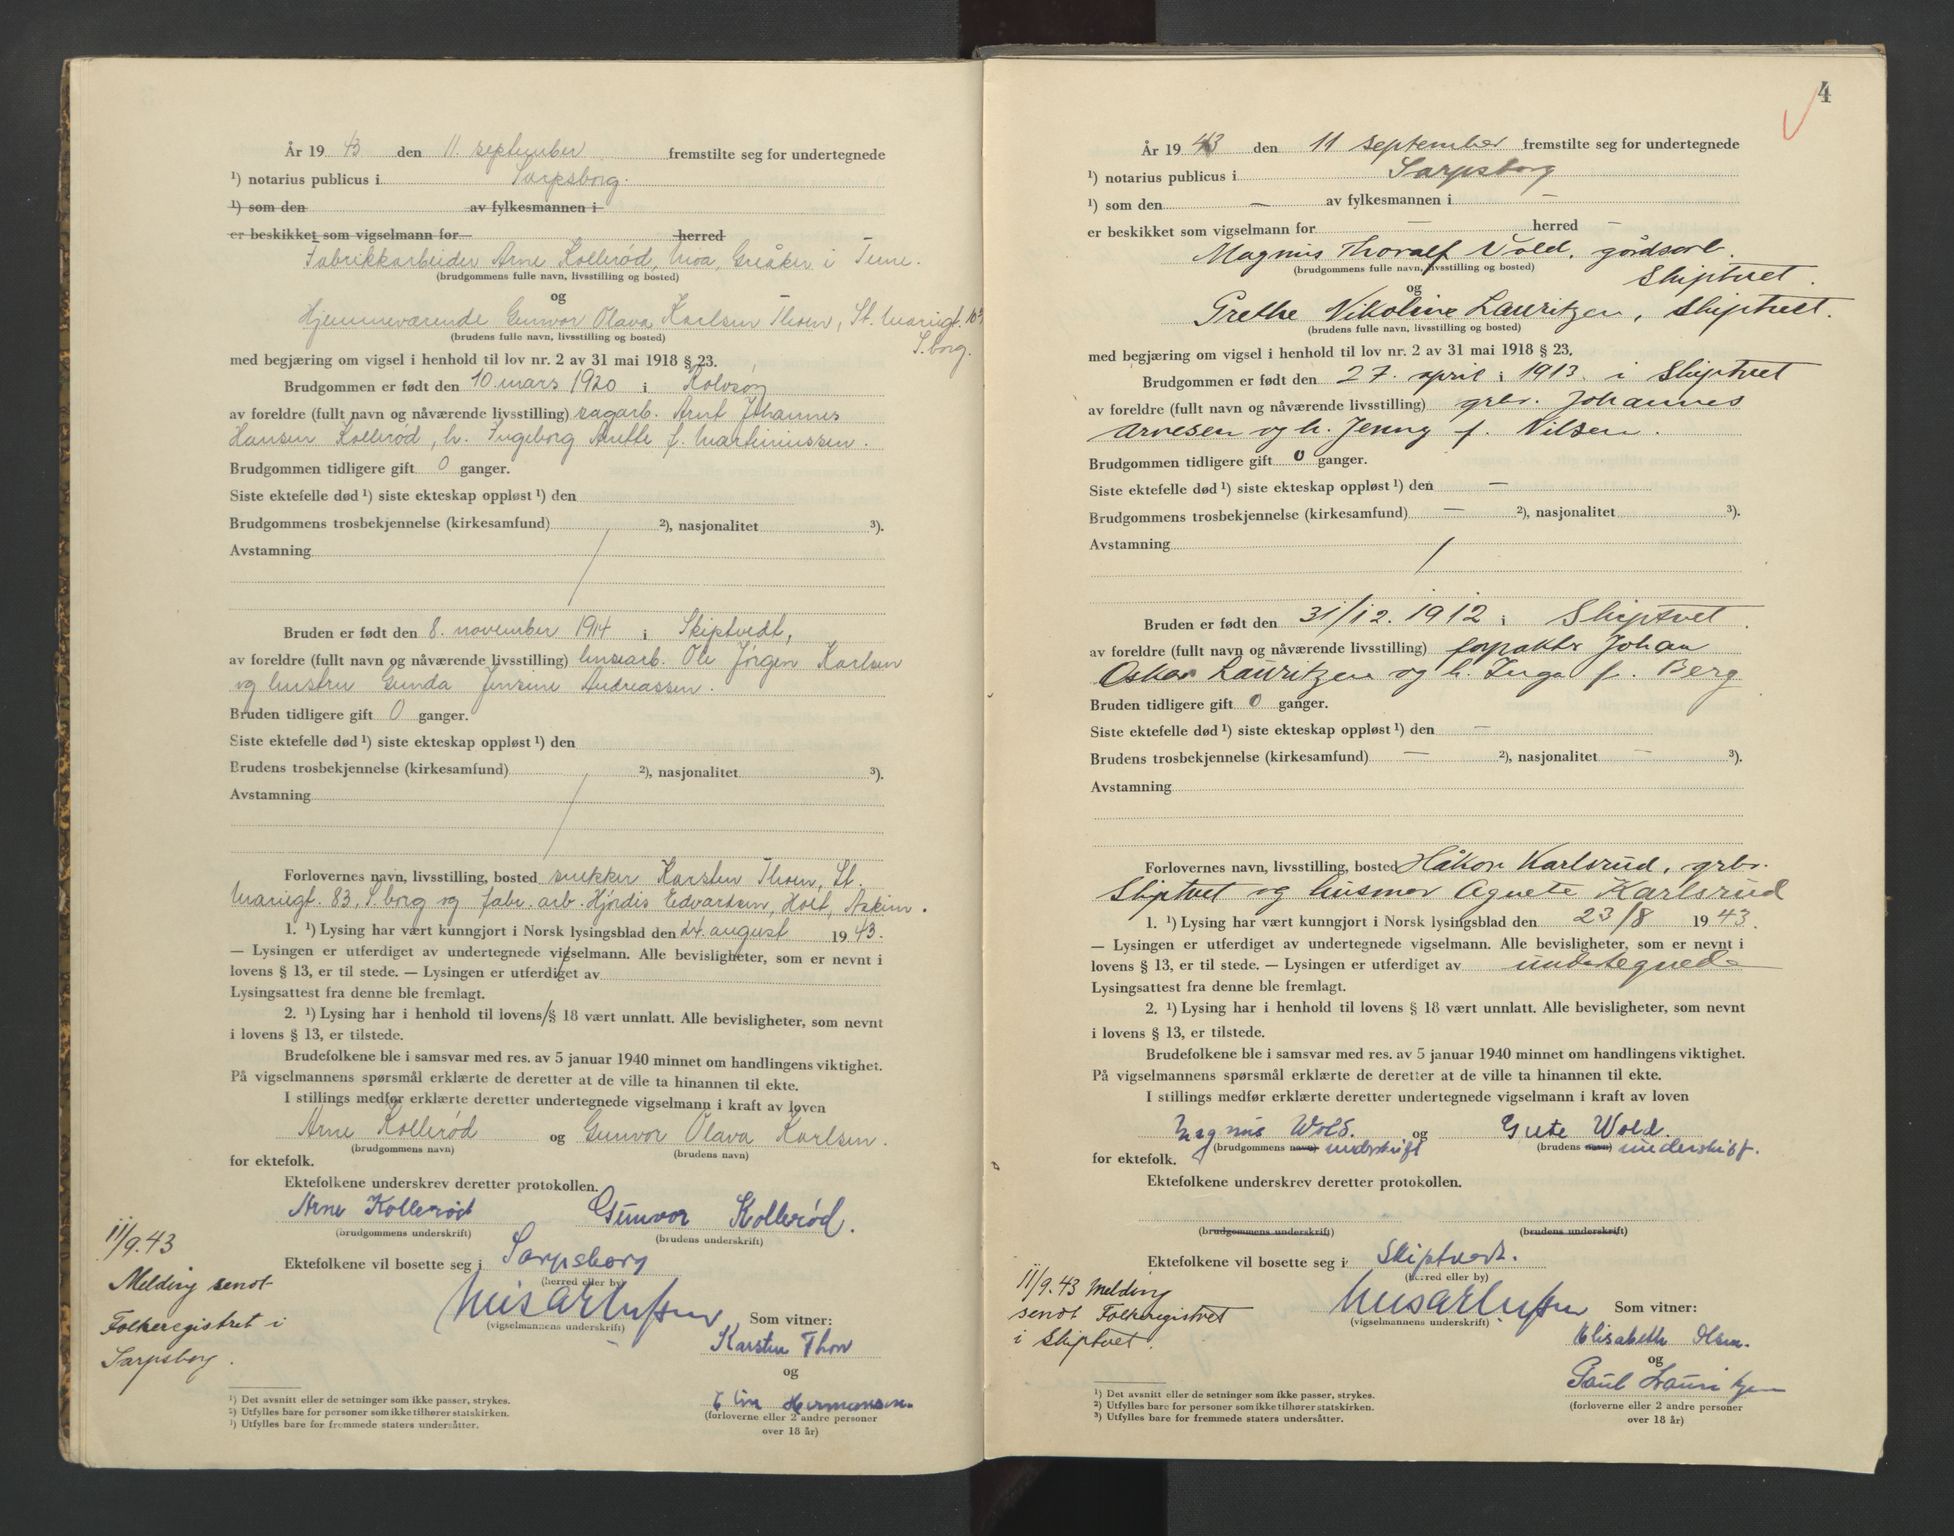 År 19 43 den 11. september fremstilte seg for undertegnede
¹) notarius publicus i Sarpsborg.
¹) som den av fylkesmannen i
er beskikket som vigselmann for herred
Fabrikkarbeider Arne Kollerød, Moa, Greåker i Tune.
(brudgommens fulle navn, livsstilling og bosted)
og
Hjemmeværende Gunvor Olava Karlsen Thoen, St. Mariegt. 103
(brudens fulle navn, livsstilling og bosted)
S.borg.
med begjæring om vigsel i henhold til lov nr. 2 av 31 mai 1918 § 23.
Brudgommen er født den 10. mars 1920 i Rolvsøy
av foreldre (fullt navn og nåværende livsstilling) sagarb. Arnt Johannes
Hansen Kollerød, h. Ingeborg f. Martiniussen.
Brudgommen tidligere gift 0 ganger.
Siste ektefelle død ¹) siste ekteskap oppløst ¹) den
Brudgommens trosbekjennelse (kirkesamfund) ²), nasjonalitet ³).
Avstamning
Bruden er født den 8. november 1914 i Skiptvedt,
av foreldre (fullt navn og nåværende livsstilling) Ole Jørgen Karlsen
og hustru Gunda Jensine Andreassen.
Bruden tidligere gift 0 ganger.
Siste ektefelle død ¹) siste ekteskap oppløst ¹) den
Brudens trosbekjennelse (kirkesamfund) ²), nasjonalitet ³).
Avstamning
Forlovernes navn, livsstilling, bosted snekker Karsten Thoen, St.
Mariegt. 83, S.borg og fabr. arb. Hjórdis Edvartsen, Holt, Askim.
1. ¹) Lysing har vært kunngjort i Norsk lysingsblad den 24. august 1943.
— Lysingen er utferdiget av undertegnede vigselmann. Alle bevisligheter, som er nevnt i
lovens § 13, er til stede. — Lysingen er utferdiget av
Lysingsattest fra denne ble fremlagt.
2. ¹) Lysing har i henhold til lovens § 18 vært unnlatt. Alle bevisligheter, som nevnt
i lovens § 13, er tilstede.
Brudefolkene ble i samsvar med res. av 5 januar 1940 minnet om handlingens viktighet.
På vigselmannens spørsmål erklærte de deretter at de ville ta hinannen til ekte.
I stillings medfør erklærte deretter undertegnede vigselmann i kraft av loven
Arne Kollerød og Gunvor Olava Karlsen.
(brudgommens navn) (brudens navn)
for ektefolk.
Ektefolkene underskrev deretter protokollen.
Arne Kollerød Gunvor Kollerød.
(brudgommens underskrift) (brudens underskrift)
Ektefolkene vil bosette seg i Sarpsborg
(herred eller by)
11/9.43
Melding sendt
Folkeregistret i
Sarpsborg.
(vigselmannens underskrift)
Som vitner:
Karsten Thon
og
Elin Hermansen
(forloverne eller 2 andre personer
over 18 år)
¹) Det avsnitt eller de setninger som ikke passer, strykes.
²) Utfylles bare for personer som ikke tilhører statskirken.
³) Utfylles bare for fremmede staters undersåtter.
4
År 19 43 den 11 september fremstilte seg for undertegnede
¹) notarius publicus i Sarpsborg
¹) som den — av fylkesmannen i —
er beskikket som vigselmann for — herred —
Magnus Thoralf Vold, gårdsarb.
(brudgommens fulle navn, livsstilling og bosted)
Skiptvet.
og
Grethe Nikoline Lauritzen, Skiptvet.
(brudens fulle navn, livsstilling og bosted)
med begjæring om vigsel i henhold til lov nr. 2 av 31 mai 1918 § 23.
Brudgommen er født den 27. april i 1913 i Skiptvet
av foreldre (fullt navn og nåværende livsstilling) grbr. Johannes
Arnesen og h. Jenny f. Nilsen.
Brudgommen tidligere gift 0 ganger.
Siste ektefelle død ¹) siste ekteskap oppløst ¹) den —
Brudgommens trosbekjennelse (kirkesamfund) — ²), nasjonalitet ³).
Avstamning
Bruden er født den 31/12. 1912 i Skiptvet.
av foreldre (fullt navn og nåværende livsstilling) forpakter Johan
Oskar Lauritzen og h. Inga f. Berg
Bruden tidligere gift 0 ganger.
Siste ektefelle død ¹) siste ekteskap oppløst ¹) den —
Brudens trosbekjennelse (kirkesamfund) — ²), nasjonalitet — ³).
Avstamning
Forlovernes navn, livsstilling, bosted Håkon Karlsrud, grbr.
Skiptvet og husmor Agnete Karlsrud
1. ¹) Lysing har vært kunngjort i Norsk lysingsblad den 23/8 1943.
— Lysingen er utferdiget av undertegnede vigselmann. Alle bevisligheter, som er nevnt i
lovens § 13, er til stede. — Lysingen er utferdiget av undertegnede
Lysingsattest fra denne ble fremlagt.
2. ¹) Lysing har i henhold til lovens § 18 vært unnlatt. Alle bevisligheter, som nevnt
i lovens § 13, er tilstede.
Brudefolkene ble i samsvar med res. av 5 januar 1940 minnet om handlingens viktighet.
På vigselmannens spørsmål erklærte de deretter at de ville ta hinannen til ekte.
I stillings medfør erklærte deretter undertegnede vigselmann i kraft av loven
Magnus Wold. og Grete Wold.
(brudgommens navn) underskrift (brudens navn) underskrift.
for ektefolk.
Ektefolkene underskrev deretter protokollen.
(brudgommens underskrift) (brudens underskrift)
Ektefolkene vil bosette seg i Skiptvedt.
(herred eller by)
11/9.43 Melding
sendt Folkeregistret
i Skiptvet.
(vigselmannens underskrift)
Som vitner:
Elisabeth Olsen.
og
Paul Lauritzen
(forloverne eller 2 andre personer
over 18 år)
¹) Det avsnitt eller de setninger som ikke passer, strykes.
²) Utfylles bare for personer som ikke tilhører statskirken.
³) Utfylles bare for fremmede staters undersåtter.